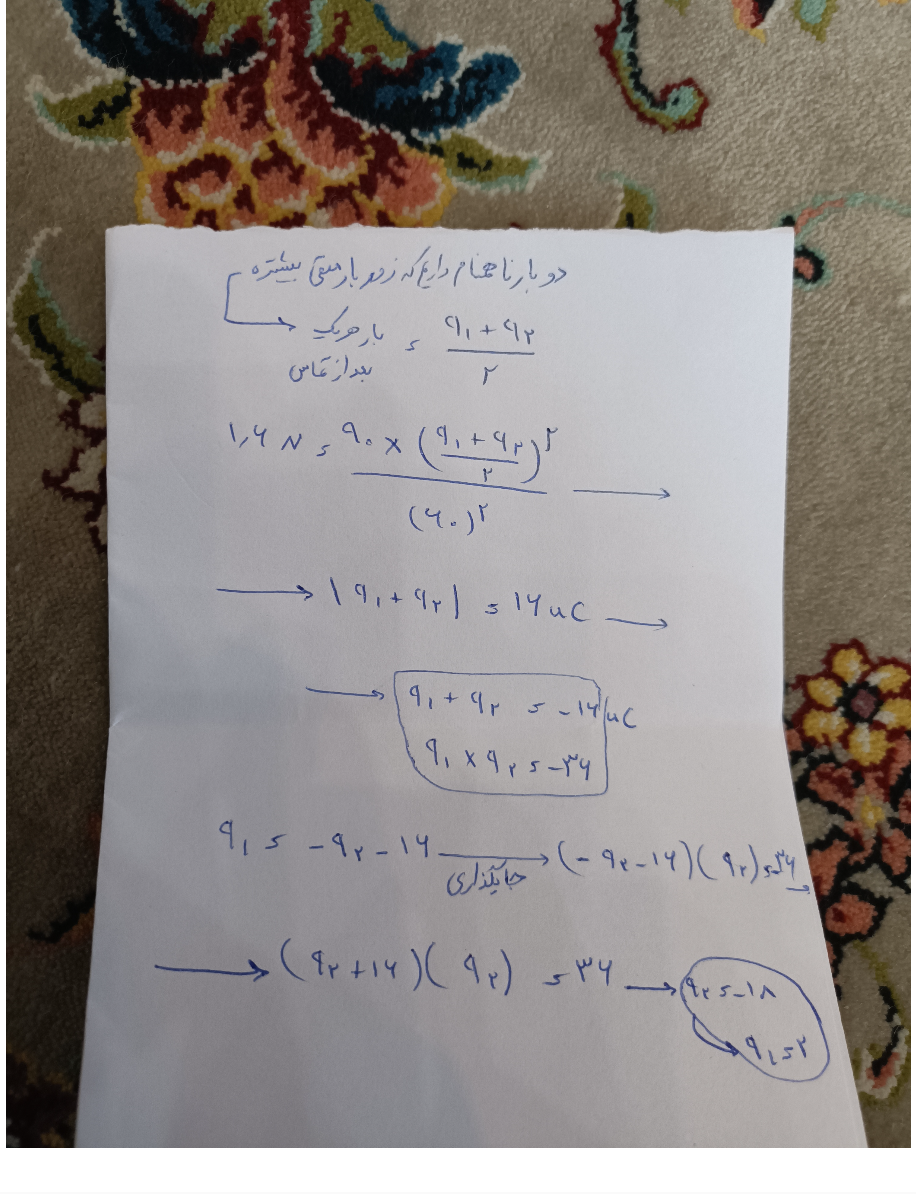 دو بار ناهمنام داریم که زور بار منفی بیشتره
بار هر یک بعد از تماس = (q₁ + q₂) / ۲
۱٫۶ N = ۹۰ × ((q₁ + q₂) / ۲)^۲ / (۶۰)^۲ →
→ |q₁ + q₂| = ۱۶ uC →
→ q₁ + q₂ = -۱۶ uC
q₁ × q₂ = -۳۶
q₁ = -q₂ - ۱۶ → جایگذاری (-q₂ - ۱۶)(q₂) = -۳۶ →
→ (q₂ + ۱۶)(q₂) = ۳۶ → q₂ = -۱۸
q₁ = ۲